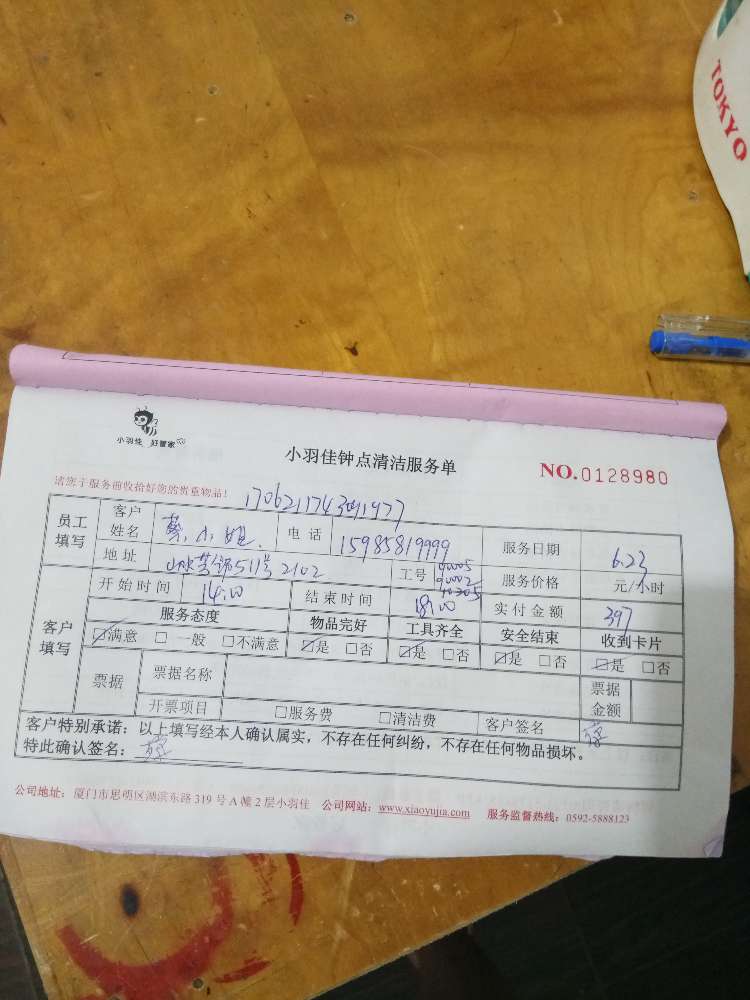 TOKYO
小羽佳 好管家
小羽佳钟点清洁服务单
NO.0128980
请您于服务前收拾好您的贵重物品!
员工填写 客户姓名 蔡小姐 电话 15985819999 服务日期 6.23
地址 511号2102 工号 服务价格 元/小时
客户填写 开始时间 14:00 结束时间 18:00 实付金额 397
服务态度 物品完好 工具齐全 安全结束 收到卡片
☑满意 □一般 □不满意 ☑是 □否 ☑是 □否 ☑是 □否 ☑是 □否
票据 票据名称 票据金额
开票项目 □服务费 □清洁费 客户签名 蔡
客户特别承诺：以上填写经本人确认属实，不存在任何纠纷，不存在任何物品损坏。
特此确认签名：蔡
公司地址：厦门市思明区湖滨东路319号A幢2层小羽佳 公司网站：www.xiaoyujia.com 服务监督热线：0592-5888123